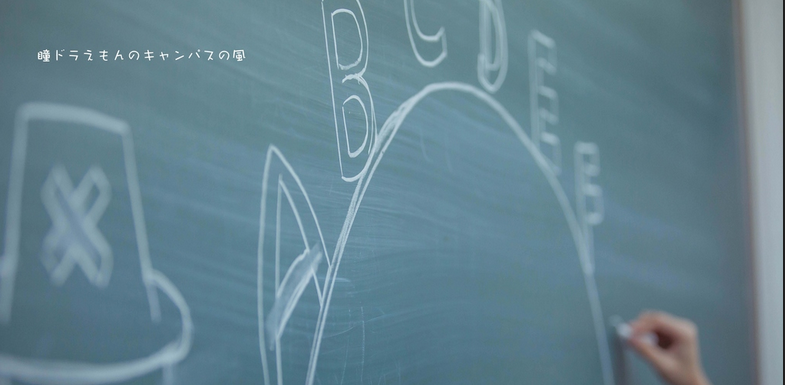 瞳ドラえもんのキャンパスの風
A B C D E F
X